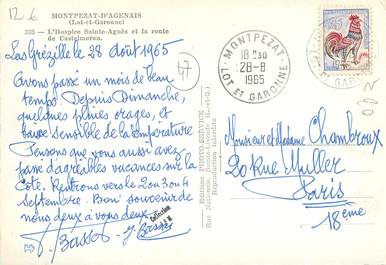 12.6
MONTPEZAT-D'AGENAIS
(Lot-et-Garonne)
L'Hospice Sainte-Agnès et la route
de Castelmoron.
Las Grézille le 28 Août 1965
47
Avons passé un mois de beau
temps. Depuis Dimanche,
quelques pluies orages, et
baisse sensible de la température
Pensons que vous aussi avez
passé d'agréables vacances sur la
Côte. Rentrons vers le 2 ou 3 ou 4
Septembre. Bon souvenir de
nous deux à vous deux.
J. Bassot J. Bassot
Collection
Editions PHOTO-SERVICE
Rue Nationale, Sainte-Livrade (L.-et-G.)
Reproduction interdite
MONTPEZAT
18 H 30
28-8
1965
LOT ET GARONNE
Monsieur et Madame Chambroux
20 Rue Muller
Paris
18ème